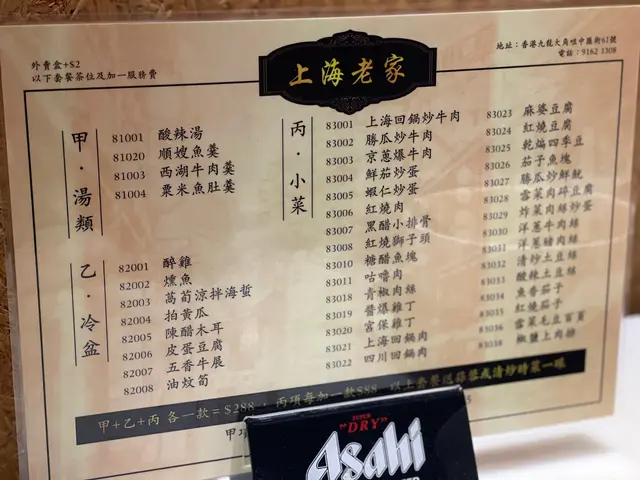 外賣盒+$2
以下套餐茶位及加一服務費
上海老家
地址：香港九龍大角咀中匯街61號
電話：9162 1308
甲·湯類
81001 酸辣湯
81020 順嫂魚羹
81003 西湖牛肉羹
81004 粟米魚肚羹
乙·冷盆
82001 醉雞
82002 燻魚
82003 萵筍涼拌海蜇
82004 拍黃瓜
82005 陳醋木耳
82006 皮蛋豆腐
82007 五香牛展
82008 油炆筍
丙·小菜
83001 上海回鍋炒牛肉
83002 勝瓜炒牛肉
83003 京蔥爆牛肉
83004 鮮茄炒蛋
83005 蝦仁炒蛋
83006 紅燒肉
83007 黑醋小排骨
83008 紅燒獅子頭
83010 糖醋魚塊
83011 咕嚕肉
83018 青椒肉絲
83019 醬爆雞丁
83020 宮保雞丁
83021 上海回鍋肉
83022 四川回鍋肉
83023 麻婆豆腐
83024 紅燒豆腐
83025 乾煸四季豆
83026 茄子魚塊
83027 勝瓜炒鮮魷
83028 雪菜肉碎豆腐
83029 炸菜肉絲炒蛋
83030 洋蔥牛肉絲
83031 洋蔥豬肉絲
83032 清炒土豆絲
83033 酸辣土豆絲
83034 魚香茄子
83035 紅燒茄子
83036 雪菜毛豆百頁
83038 椒鹽上肉排
甲+乙+丙 各一款=$288，丙項每加一款$88，以上套餐送雞蓉或清炒時菜一碟
甲項
SUPER
"DRY"
Asahi